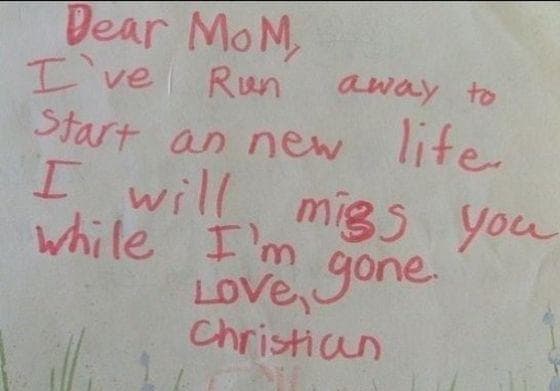 Dear MoM,
I've Run away to
Start an new life.
I will miss you
while I'm gone.
Love,
Christian